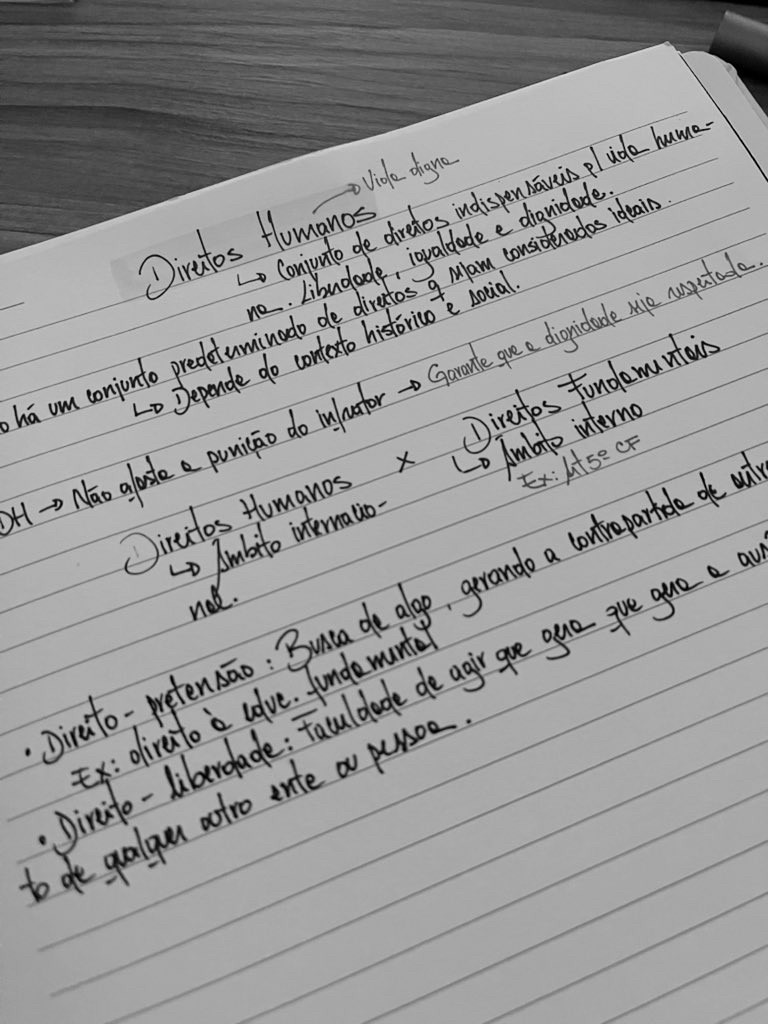 → Vida digna
Direitos Humanos
↳ Conjunto de direitos indispensáveis p/ vida huma-
na. Liberdade, igualdade e dignidade.
o há um conjunto predeterminado de direitos q sejam considerados ideais.
↳ Depende do contexto histórico e social.
DH → Não afasta a punição do infrator → Garante que a dignidade seja respeitada.
Direitos Humanos x Direitos Fundamentais
↳ Âmbito internacio-
nal.
↳ Âmbito interno
Ex: Art 5º CF
• Direito - pretensão: Busca de algo, gerando a contrapartida de outro
Ex: direito à educ. fundamental
• Direito - liberdade: Faculdade de agir que gera que gera a aus
to de qualquer outro ente ou pessoa.